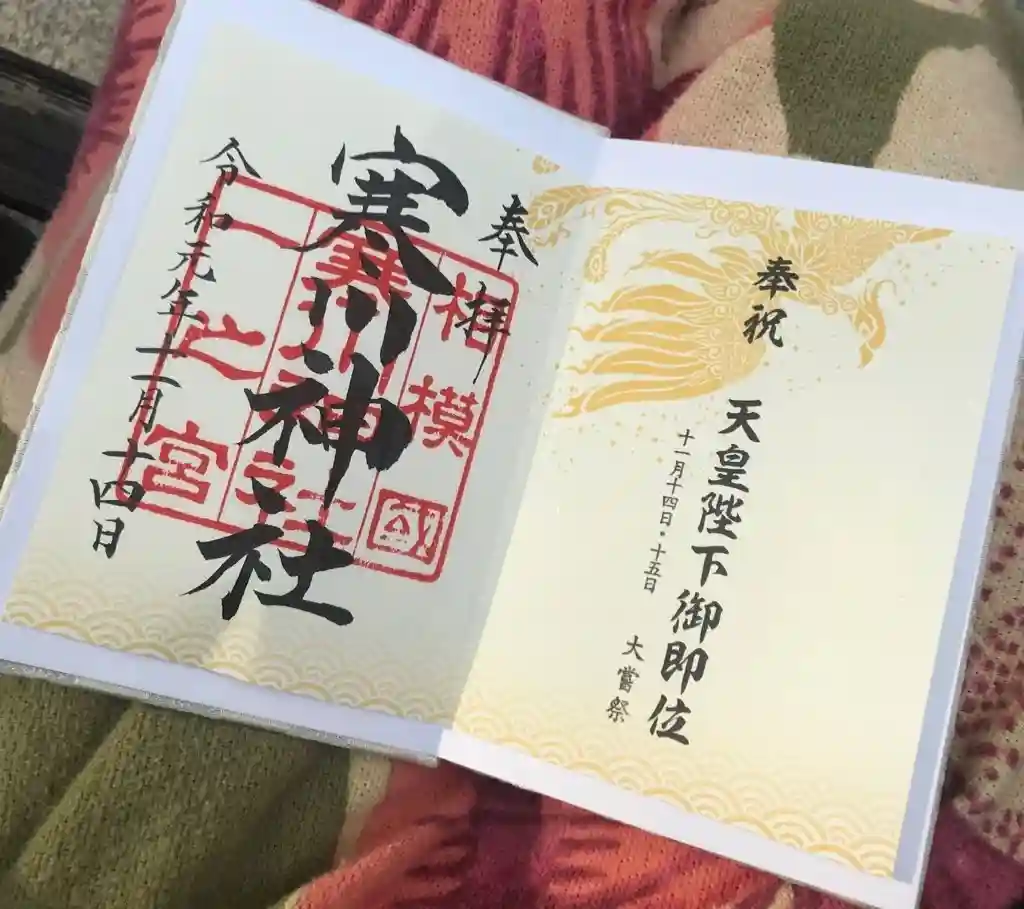 奉祝
天皇陛下御即位
十一月十四日・十五日
大嘗祭
奉拝
寒川神社
令和元年十一月十四日
相模國
寒川神社
一之宮